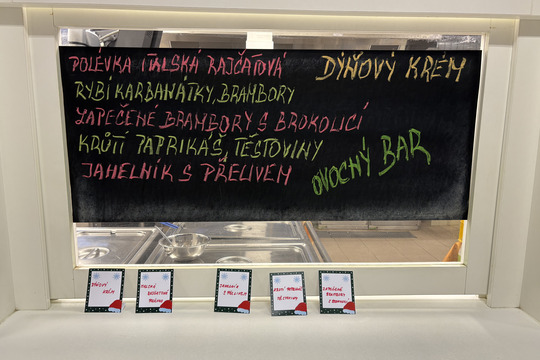 POLÉVKA ITALSKÁ RAJČATOVÁ
DÝŇOVÝ KRÉM
RYBÍ KARBANÁTKY, BRAMBORY
ZAPEČENÉ BRAMBORY S BROKOLICÍ
KRŮTÍ PAPRIKÁŠ, TĚSTOVINY
JAHELNÍK S PŘELIVEM
OVOCNÝ BAR
DÝŇOVÝ
KRÉM
ITALSKÁ
RAJČATOVÁ
JAHELNÍK
S PŘELIVEM
KRŮTÍ
TĚSTOVINY
ZAPEČENÉ
BRAMBORY